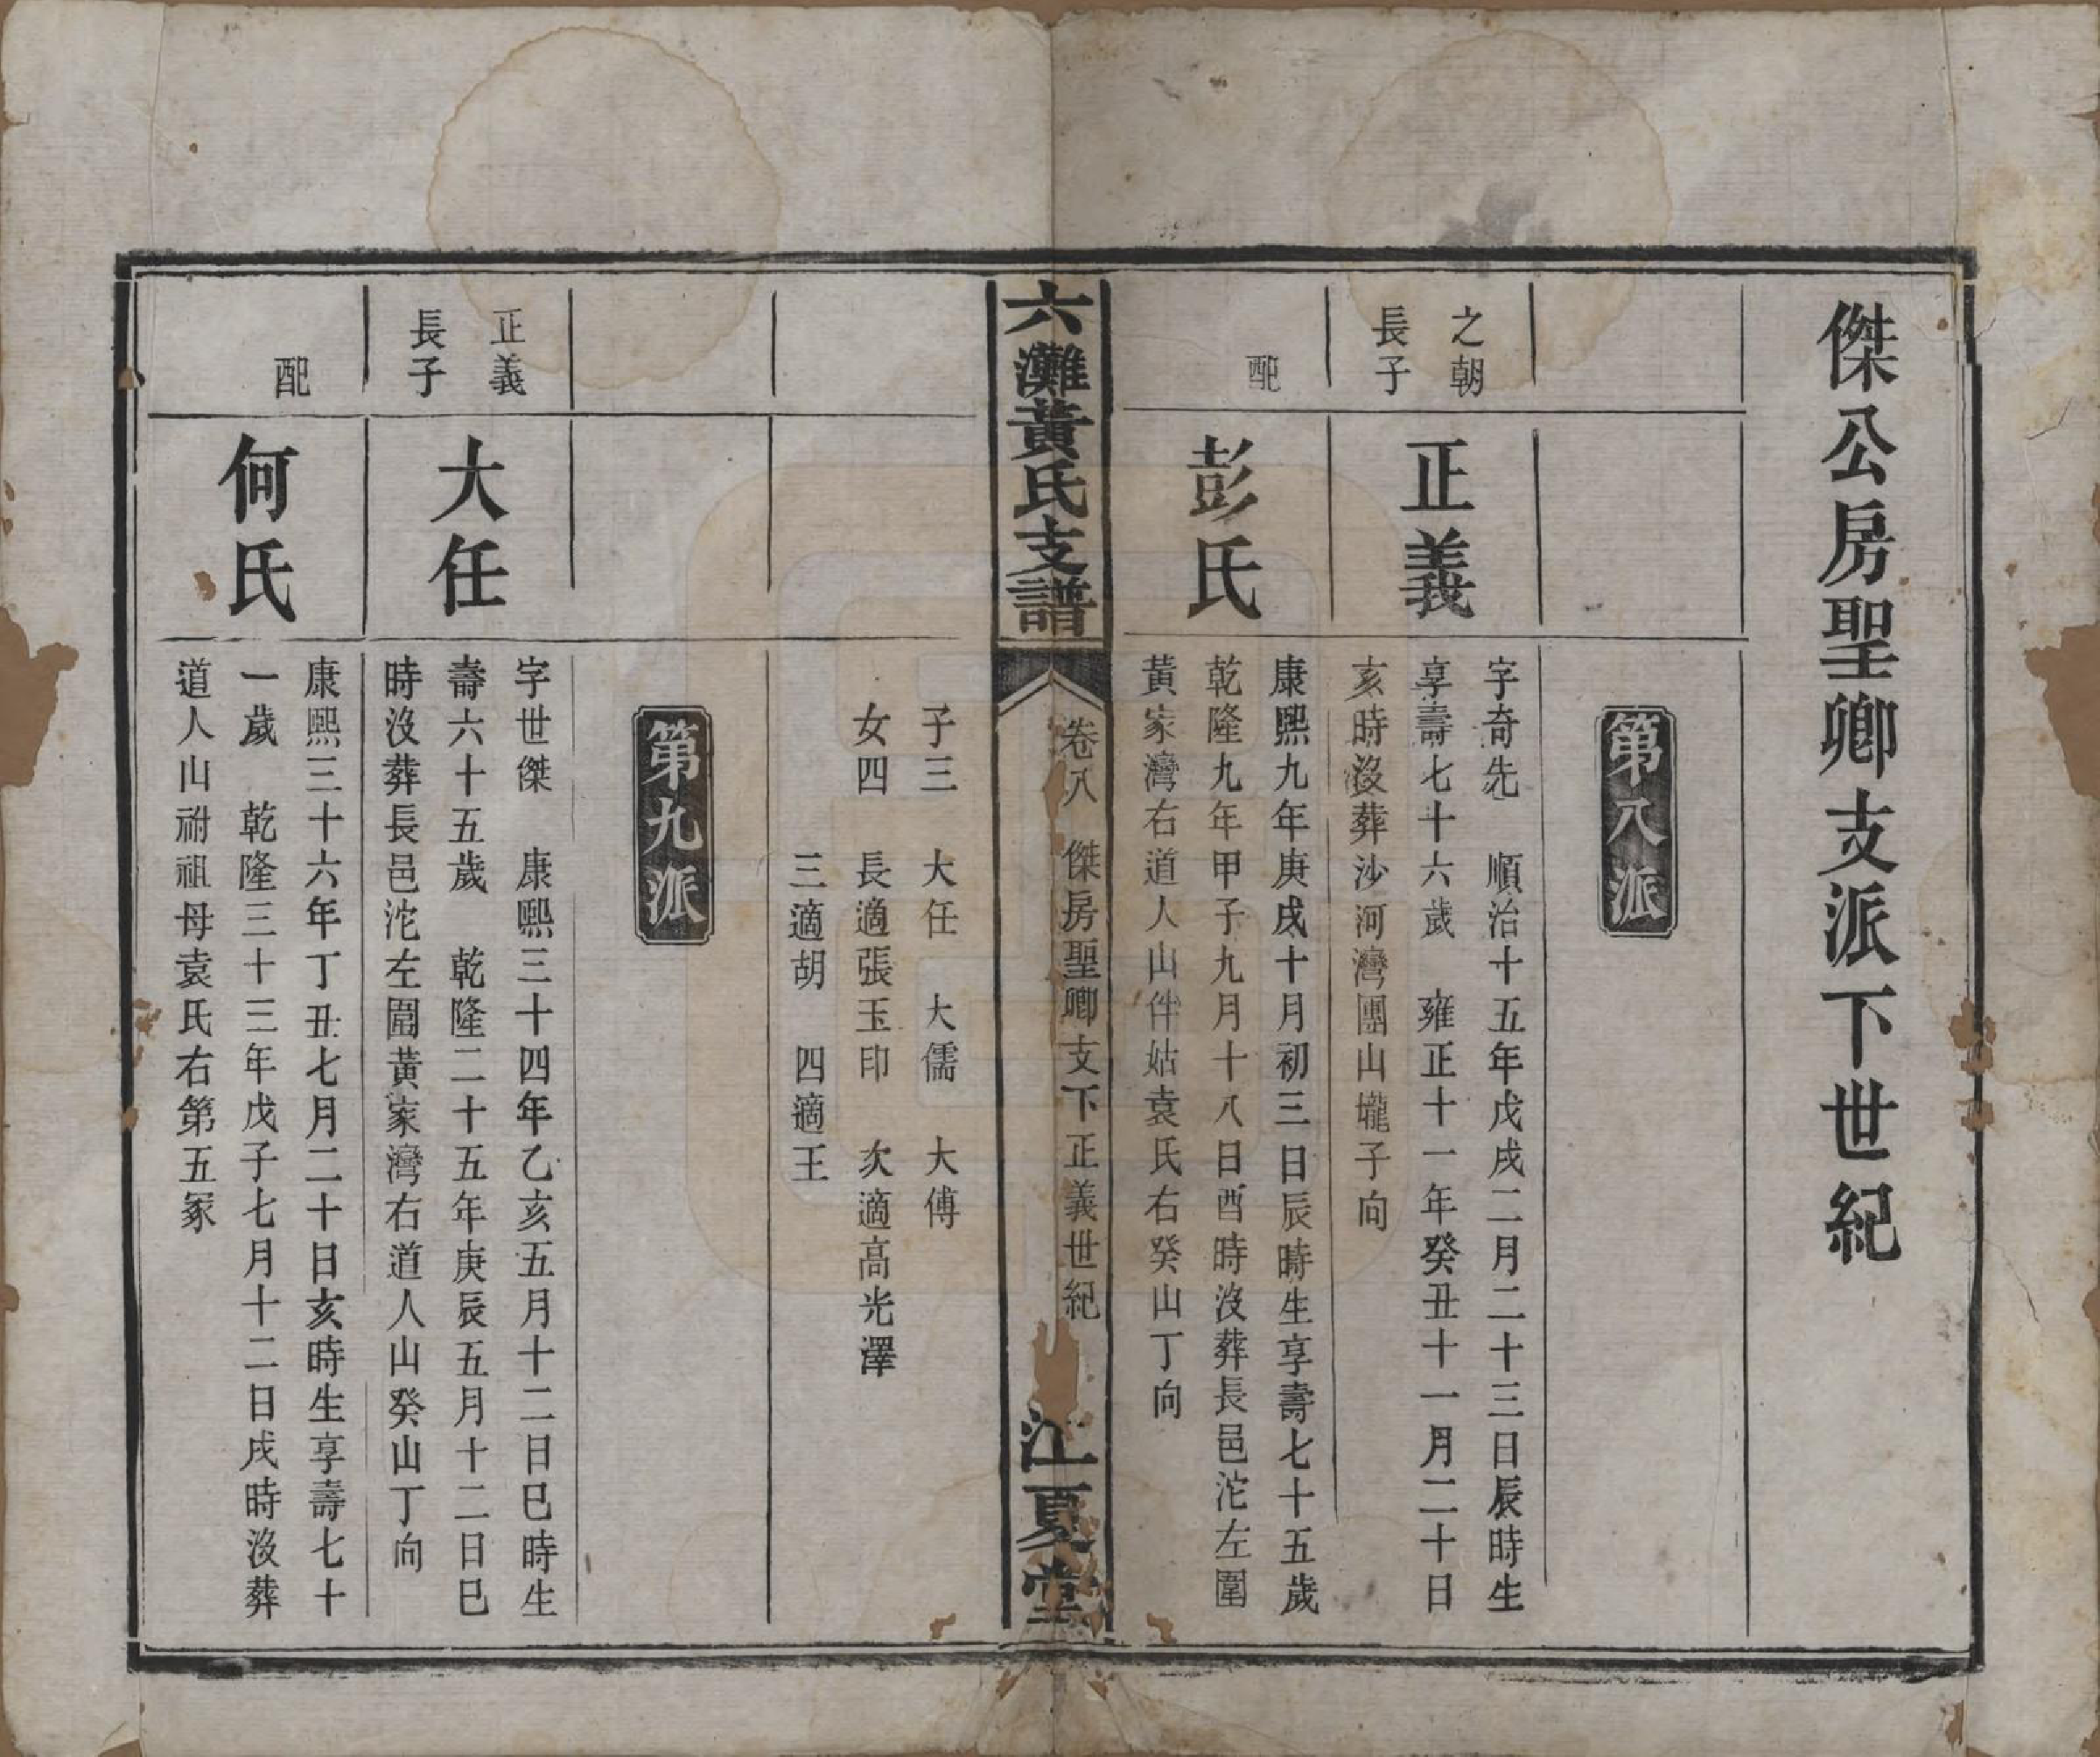 傑公房聖卿支派下世紀
第八派
之朝
長子
正義
字奇先 順治十五年戊戌二月二十三日辰時生
享壽七十六歲 雍正十一年癸丑十一月二十日
亥時沒葬沙河灣團山壠子向
配
彭氏
康熙九年庚戌十月初三日辰時生享壽七十五歲
乾隆九年甲子九月十八日酉時沒葬長邑沱左圍
黃家灣右道人山伴姑袁氏右癸山丁向
六灘黃氏支譜
卷八 傑房聖卿支下正義世紀
江夏堂
子三 大任 大儒 大傅
女四 長適張玉印 次適高光澤
三適胡 四適王
第九派
正義
長子
大任
字世傑 康熙三十四年乙亥五月十二日巳時生
壽六十五歲 乾隆二十五年庚辰五月十二日巳
時沒葬長邑沱左圍黃家灣右道人山癸山丁向
配
何氏
康熙三十六年丁丑七月二十日亥時生享壽七十
一歲 乾隆三十三年戊子七月十二日戌時沒葬
道人山祔祖母袁氏右第五冢